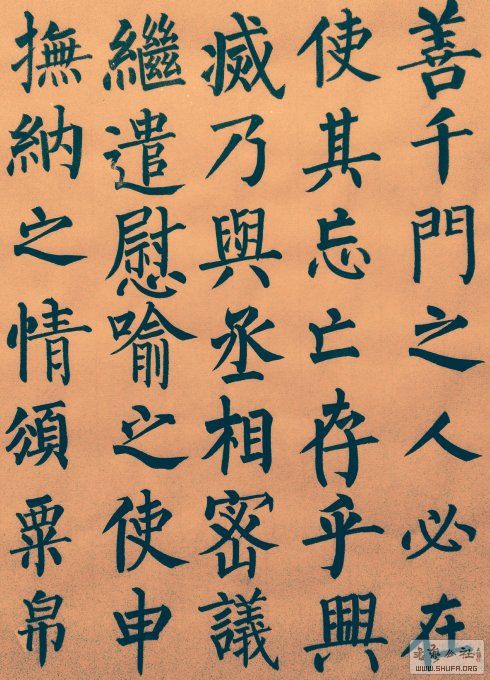 善千門之人必在
使其忘亡存乎興
滅乃與丞相密議
繼遣慰喻之使申
撫納之情須粟帛
WWW.SHUFA.ORG